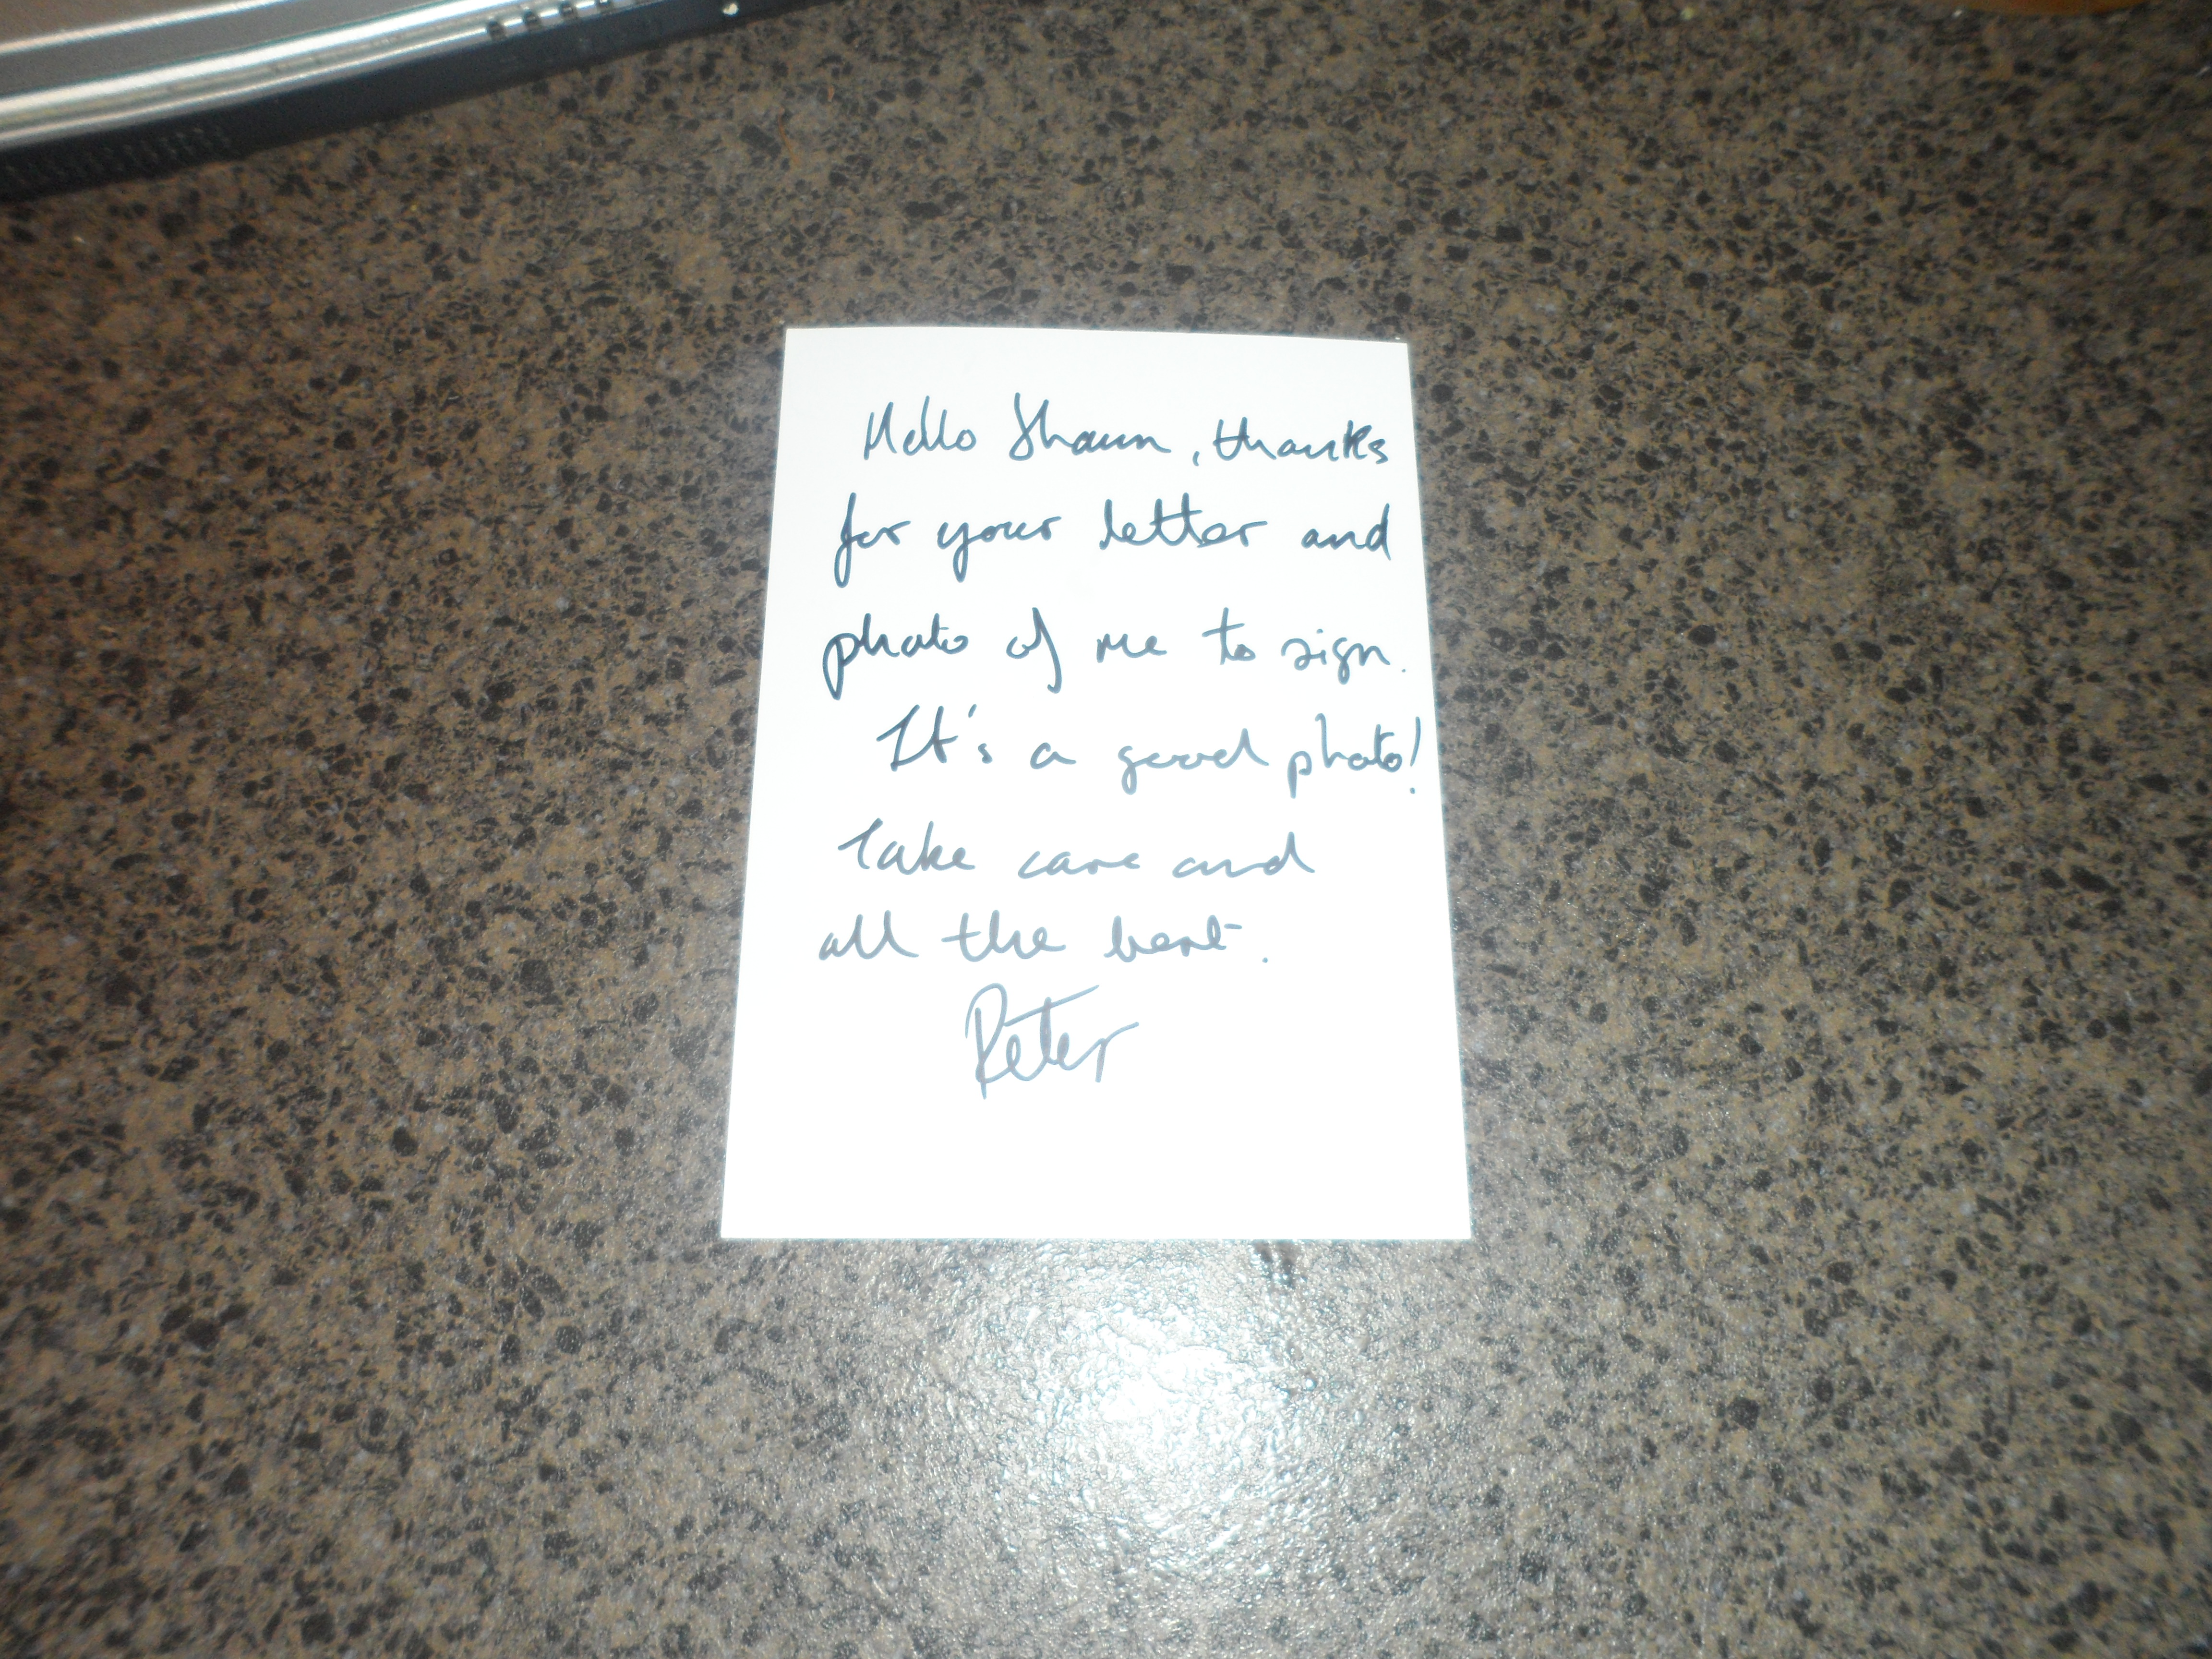 Hello Shaun, thanks
for your letter and
photo of me to sign.
It's a good photo!
Take care and
all the best.
Peter